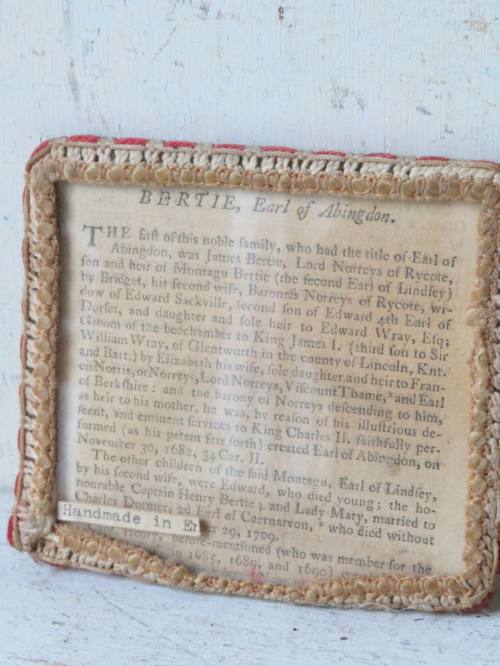 BERTIE, Earl of Abingdon.
THE first of this noble family, who had the title of Earl of
Abingdon, was James Bertie, Lord Norreys of Rycote,
son and heir of Montagu Bertie (the second Earl of Lindsey)
by Bridget, his second wife, Baroness Norreys of Rycote, wi-
dow of Edward Sackville, second son of Edward 4th Earl of
Dorset, and daughter and sole heir to Edward Wray, Esq;
Groom of the bedchamber to King James I. (third son to Sir
William Wray, of Glentworth in the county of Lincoln, Knt.
and Bart.) by Elizabeth his wife, sole daughter and heir to Fran-
cis Norris, or Norreys, Lord Norreys, Viscount Thame, and Earl
of Berkshire: and the barony of Norreys descending to him,
as heir to his mother, he was, by reason of his illustrious de-
scent, and eminent services to King Charles II. faithfully per-
formed (as his patent sets forth) created Earl of Abingdon, on
November 30, 1682, 34 Car. II.
The other children of the said Montagu, Earl of Lindsey,
by his second wife, were Edward, who died young; the ho-
nourable Captain Henry Bertie; and Lady Mary, married to
Charles Dormer, 2d Earl of Caernarvon, who died without
Handmade in En
29, 1709.
Henry, before-mentioned (who was member for the
in 1685, 1689, and 1690)